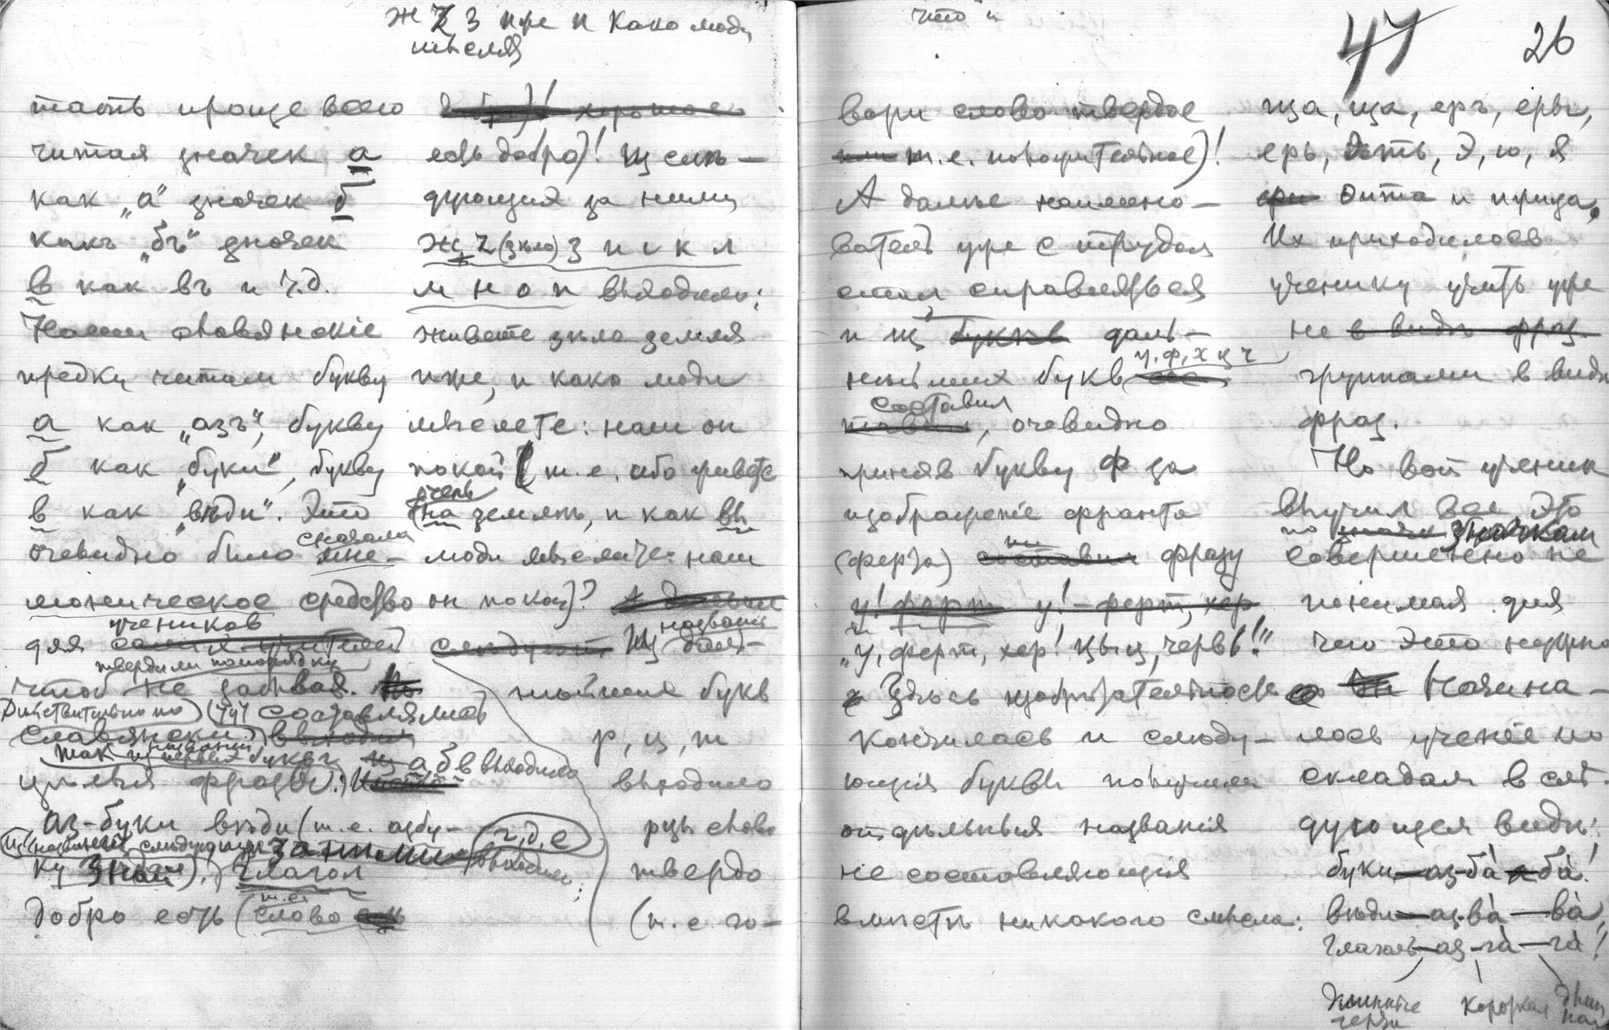 ж Z з иже и како люди
мысля
тать проще всего
читая значек а
как „а“ значек б
какъ „бъ“ значек
в как въ и т.д.
Наши славянскіе
предки читали букву
а как „азъ“, букву
б как „буки“, букву
в как „вѣди“. Это
очевидно было сначала мне-
моническое средство
для учеников
твердили попорядку
чтоб не забывая.
Дѣйствительно по
славянски составлялись
так из первых букв а б в выходило
цѣлыя фразы:
аз-буки вѣди (т.е. азбу-
ку знаю). Глагол
добро есть (т.е. слово
есть добро)! Из слѣ-
дующих за ними
ж z (зѣло) з и і к л
м н о п выходило:
живете зѣло земля
иже, и како люди
мыслете: наш он
покой (т.е. або живете
очень на землѣ, и как вы
люди мыслите: наш
он покой)?
Из названій даль-
нѣйших букв
р, ц, т
выходило
рцы слово
твердо
(т.е. го-
что
47 26
вори слово твердое
т.е. поучительное)!
А далѣе наимено-
ватель уже с трудом
стал справляться
и из даль-
нѣйших букв у, ф, х ц ч
составил, очевидно
приняв букву Ф за
изображеніе франта
(ферта) фразу
„у, ферт, хер! цыц, червь!“
Здѣсь изобрѣтательность
кончилась и слѣду-
ющія буквы получили
отдѣльныя названія
не составляющія
вмѣстѣ никакого смысла:
ша, ща, еръ, еры,
ерь, ять, э, ю, я
Ѳита и ижица,
Их приходилось
ученику учить уже
не в видѣ фраз
группами в видѣ
фраз.
Но вот ученик
выучил все это
по значкам
совершенно не
понимая для
чего это нужно
Начина-
лось ученіе по
складам в слѣ-
дующем видѣ:
буки—аз-ба̀ — ба̀!
вѣди—аз-ва̀ — ва̀,
глаголь—аз-га̀ — га̀!
длинные
черты
короткая